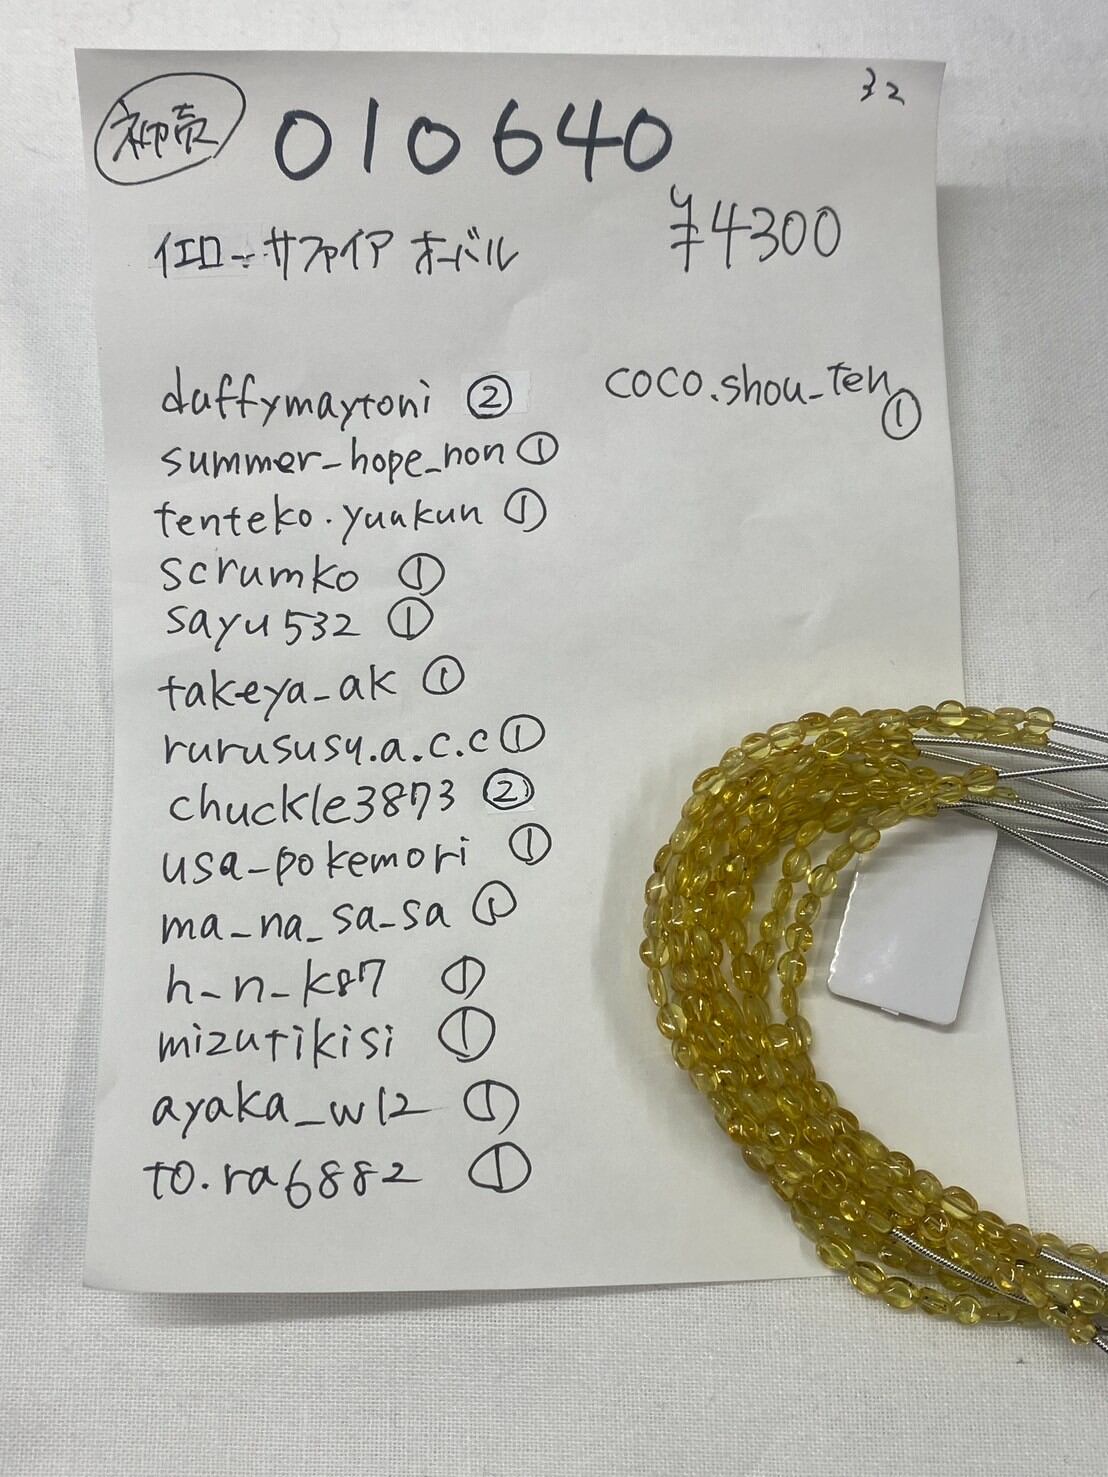 32
神売 010640
イエローサファイア オーバル ¥4300
daffymaytoni ②
summer_hope_non ①
tenteko.yuukun ①
scrumko ①
sayu532 ①
takeya_ak ①
rurususy.a.c.c ①
chuckle3873 ②
usa_pokemori ①
ma_na_sa_sa ①
h_n_k87 ①
mizutikisi ①
ayaka_w12 ①
to.ra6882 ①
coco.shou_ten ①